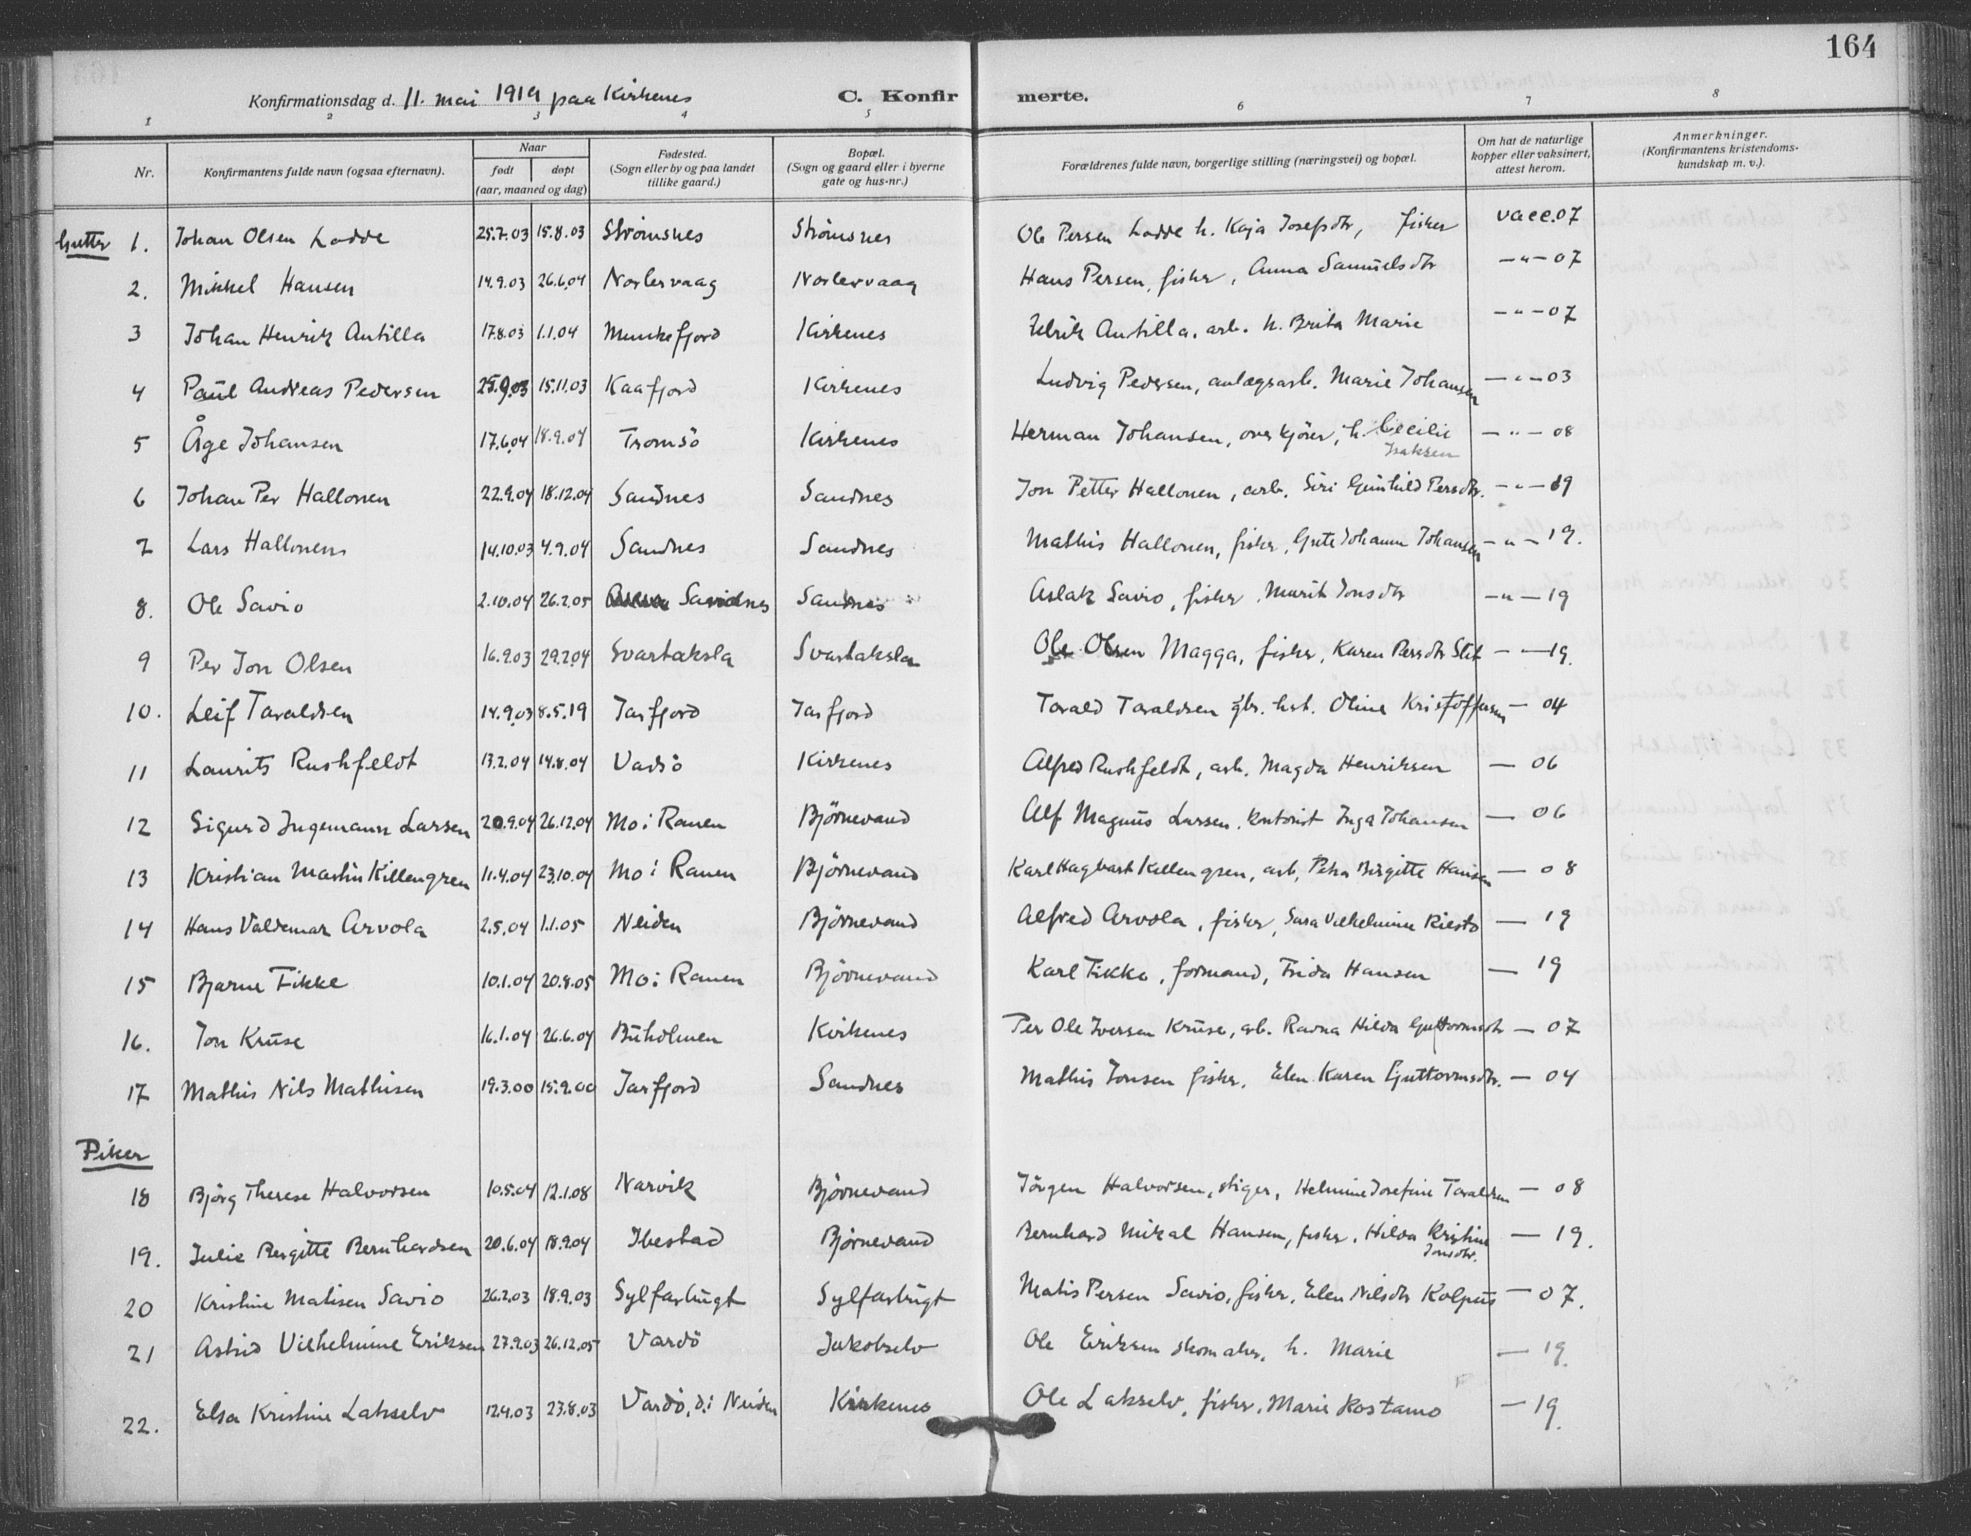 164
Konfirmationsdag d. 11. mai 1919 paa Kirkenes C. Konfirmerte.
1 2 3 4 5 6 7 8
Nr. Konfirmantens fulde navn (ogsaa efternavn). Naar født døpt (aar, maaned og dag) Fødested. (Sogn eller by og paa landet tillike gaard.) Bopæl. (Sogn og gaard eller i byerne gate og hus-nr.) Forældrenes fulde navn, borgerlige stilling (næringsvei) og bopæl. Om hat de naturlige kopper eller vaksinert, attest herom. Anmerkninger. (Konfirmantens kristendomskundskap m. v.).
Gutter 1. Johan Olsen Ladde 25.7.03 15.8.03 Strömsnes Strömsnes Ole Persen Ladde h. Kaja Josefsdtr, fisker vacc.07
2. Mikkel Hansen 14.9.03 26.6.04 Norlervaag Norlervaag Hans Persen, fisker, Anna Samuelsdtr —"— 07
3 Johan Henrik Antilla 17.8.03 1.1.04 Munkefjord Kirkenes Ulrik Antilla, arb. h. Brita Marie —"— 07
4 Paul Andreas Pedersen 25.9.03 15.11.03 Kaafjord Kirkenes Ludvig Pedersen, anlægsarb. Marie Johansen —"— 03
5 Åge Johansen 17.6.04 18.9.04 Tromsö Kirkenes Herman Johansen, overkjörer, h. Cecilie Isaksen —"— 08
6 Johan Per Hallonen 22.9.04 18.12.04 Sandnes Sandnes Jon Petter Hallonen, arb. Siri Gunhild Persdtr. —"— 19
7 Lars Hallonen 14.10.03 4.9.04 Sandnes Sandnes Mathis Hallonen, fisker, Johanne Johansen —"— 19.
8. Ole Savio 2.10.04 26.2.05 Sandnes Sandnes Aslak Savio, fisker, Marit Jonsdtr —"— 19
9 Per Jon Olsen 16.9.03 29.2.04 Svartaksla Svartaksla Ole Olsen Magga, fisker, Karen Persdtr — — 19.
10. Leif Taraldsen 14.9.03 8.5.19 Jarfjord Jarfjord Tarald Taraldsen gbr. hst. Oline Kristoffersen — 04
11 Laurits Rushfeldt 13.2.04 14.8.04 Vadsö Kirkenes Alfred Rushfeldt, arb. Magda Henriksen — 06
12 Sigurd Ingemann Larsen 20.9.04 26.12.04 Mo i Ranen Björnevand Alf Magnus Larsen, kontorist Inga Johansen — 06
13 Kristian Martin Killengren 11.4.04 23.10.04 Mo i Ranen Björnevand Karl Hagbart Killengren, arb, Petra Birgitte Hansen — 08
14 Hans Valdemar Arvola 2.5.04 1.1.05 Neiden Björnevand Alfred Arvola, fisker, Sara Vilhelmine Riesto — 19
15 Bjarne Fikke 10.1.04 20.8.05 Mo i Ranen Björnevand Karl Fikke, formand, Frida Hansen — 19
16. Jon Kruse 16.1.04 26.6.04 Buholmen Kirkenes Per Ole Iversen Kruse, arb. Ravna Hilda Guttormsdtr — 07
17 Mathis Nils Mathisen 19.3.00 15.9.00 Jarfjord Sandnes Mathis Jonsen fisker, Elen Karen Guttormsdtr. — 04
Piker
18 Björg Therese Halvorsen 10.5.04 12.1.08 Narvik Björnevand Jörgen Halvorsen, stiger, Helmine Josefine Taraldsen — 08
19. Julie Bergitte Bernhardsen 20.6.04 18.9.04 Ibestad Björnevand Bernhard Mikal Hansen, fisker, Hilda Kristine Jonsdtr. — 19.
20 Kristine Matisen Savio 26.2.03 18.9.03 Sylfarbugt Sylfarbugt Matis Persen Savio, fisker, Elen Nilsdtr Kolpus — 07.
21 Astrid Vilhelmine Eriksen 27.9.03 26.12.05 Vardö Jakobselv Ole Eriksen skomaker, h. Marie — 19.
22. Elsa Kristine Lakselv 12.4.03 23.8.03 Vardö, d. i Neiden Kirkenes Ole Lakselv, fisker, Marie Kostamo — 19.